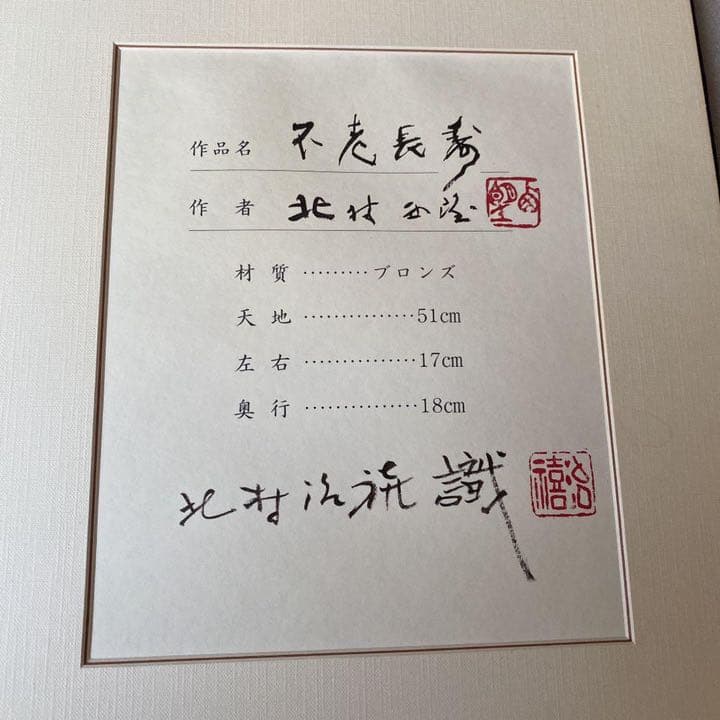 作品名 不老長寿
作者 北村西望 西望
材質 ………ブロンズ
天地 ……………51cm
左右 ……………17cm
奥行 ……………18cm
北村治禧 識 治禧